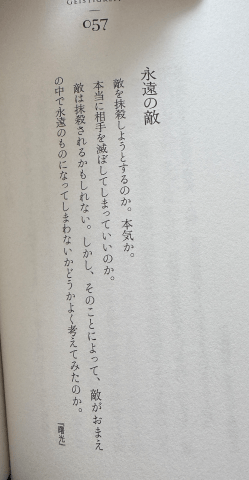 GEISTIGKEIT
057
永遠の敵
敵を抹殺しようとするのか。本気か。
本当に相手を滅ぼしてしまっていいのか。
敵は抹殺されるかもしれない。しかし、そのことによって、敵がおまえ
の中で永遠のものになってしまわないかどうかよく考えてみたのか。
『曙光』